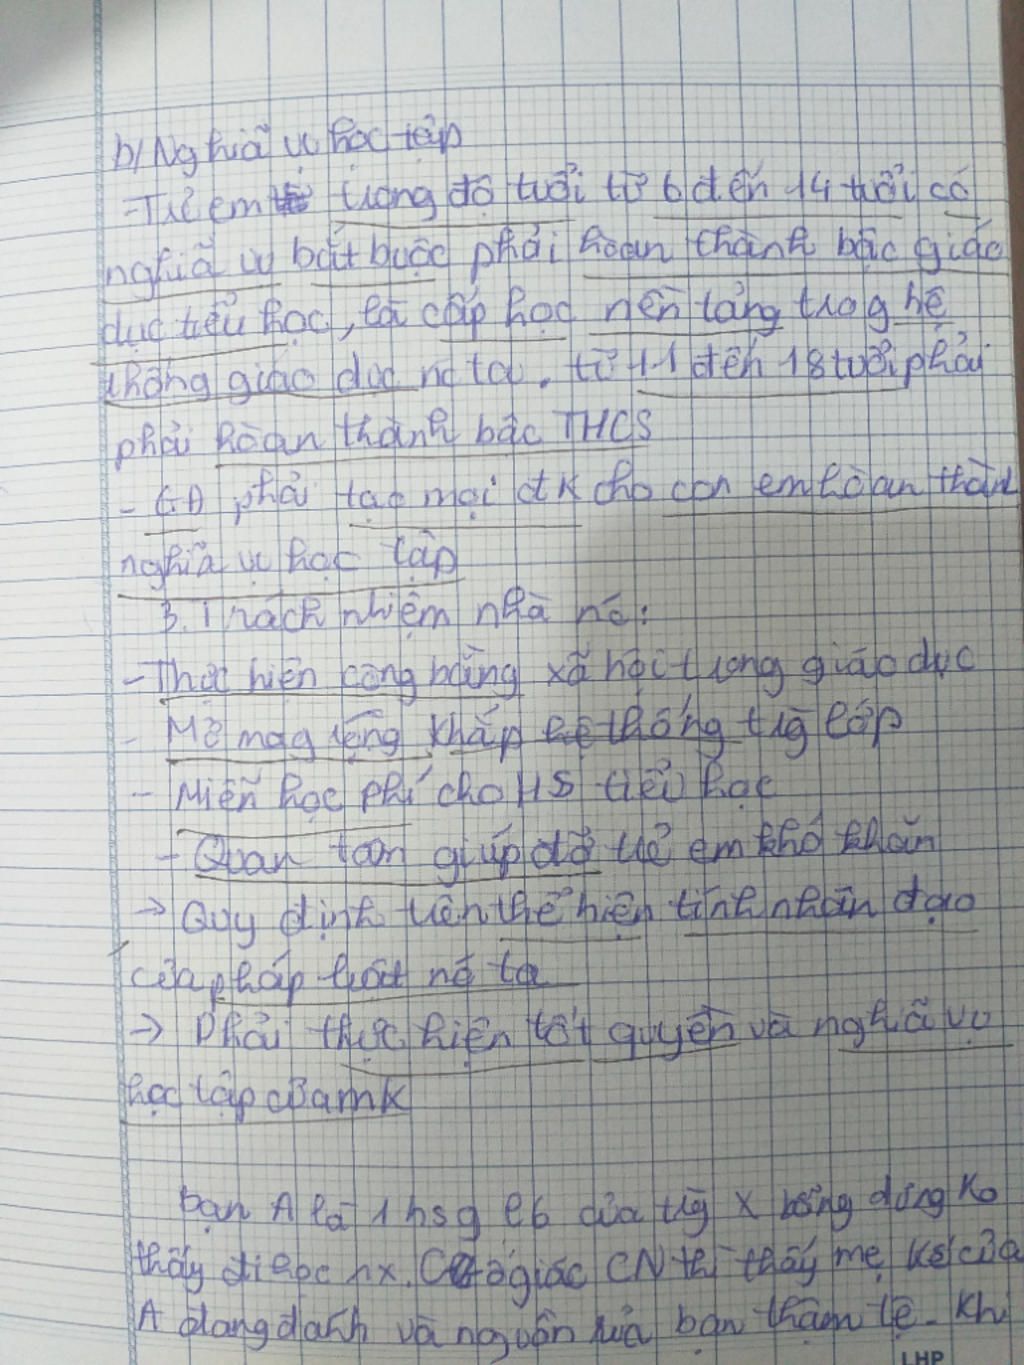 b/ Nghiã vụ học tập
- Trẻ em trong độ tuổi từ 6 đến 14 tuổi có
nghiã vụ bắt buộc phải hoàn thành bậc giáo
dục tiểu học, là cấp học nền tảng trog hệ
thống giáo dục nc ta. từ 11 đến 18 tuổi phải
phải hoàn thành bậc THCS
- GĐ phải tạo mọi đk cho con em hoàn thàn
nghiã vụ học tập
3. Trách nhiệm nhà nc:
- Thực hiện công bằng xã hội trong giáo dục
- Mở mag rộng khắp hệ thống trg lớp
- Miễn học phí cho HS tiểu học
- Quan tâm giúp đỡ trẻ em khó khăn
-> Quy định trên thể hiện tính nhân đạo
của pháp luật nc ta
-> Phải thực hiện tốt quyền và nghiã vụ
học tập của mk
bạn A là 1 hsg l6 của trg X bỗng dưng ko
thấy đi học nx. Cô giác CN thì thấy mẹ kế của
A đang đánh và nguồn rủa bạn thậm tệ. Khi
LHP